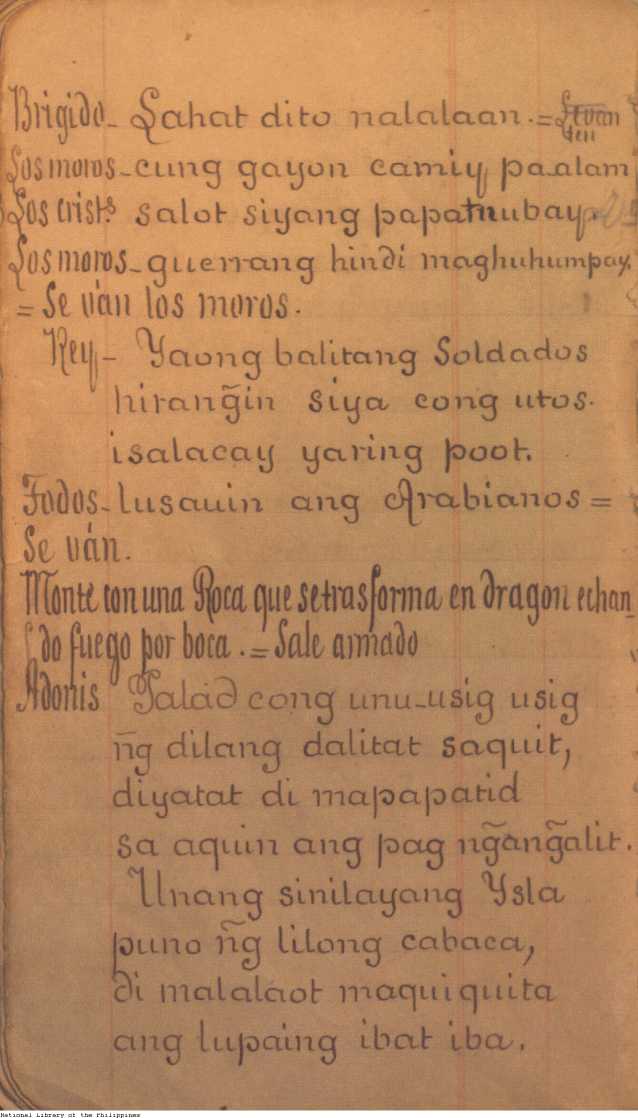 Brigido- Lahat dito nalalaan.=
Los moros-cung gayon camiy, pa-alam
Los crist.s salot siyang papatnubay.
Los moros-guerrang hindi maghuhumpay.
=Se ván los moros.
Rey- Yaong balitang Soldados
hirang̃in siya cong utos.
isalacay yaring poot.
Todos-lusauin ang Arabianos=
Se ván.
Monte con una Roca que se trasforma en dragon echan_
do fuego por boca.=Sale armado
Adonis Palad cong unu-usig usig
ñg dilang dalitat saquit,
diyatat di mapapatid
sa aquin ang pag ng̃ang̃alit.
Unang sinilayang Ysla
puno ñg lilong cabaca,
di malalaot maquiquita
ang lupaing ibat iba.
National Library of the Philippines